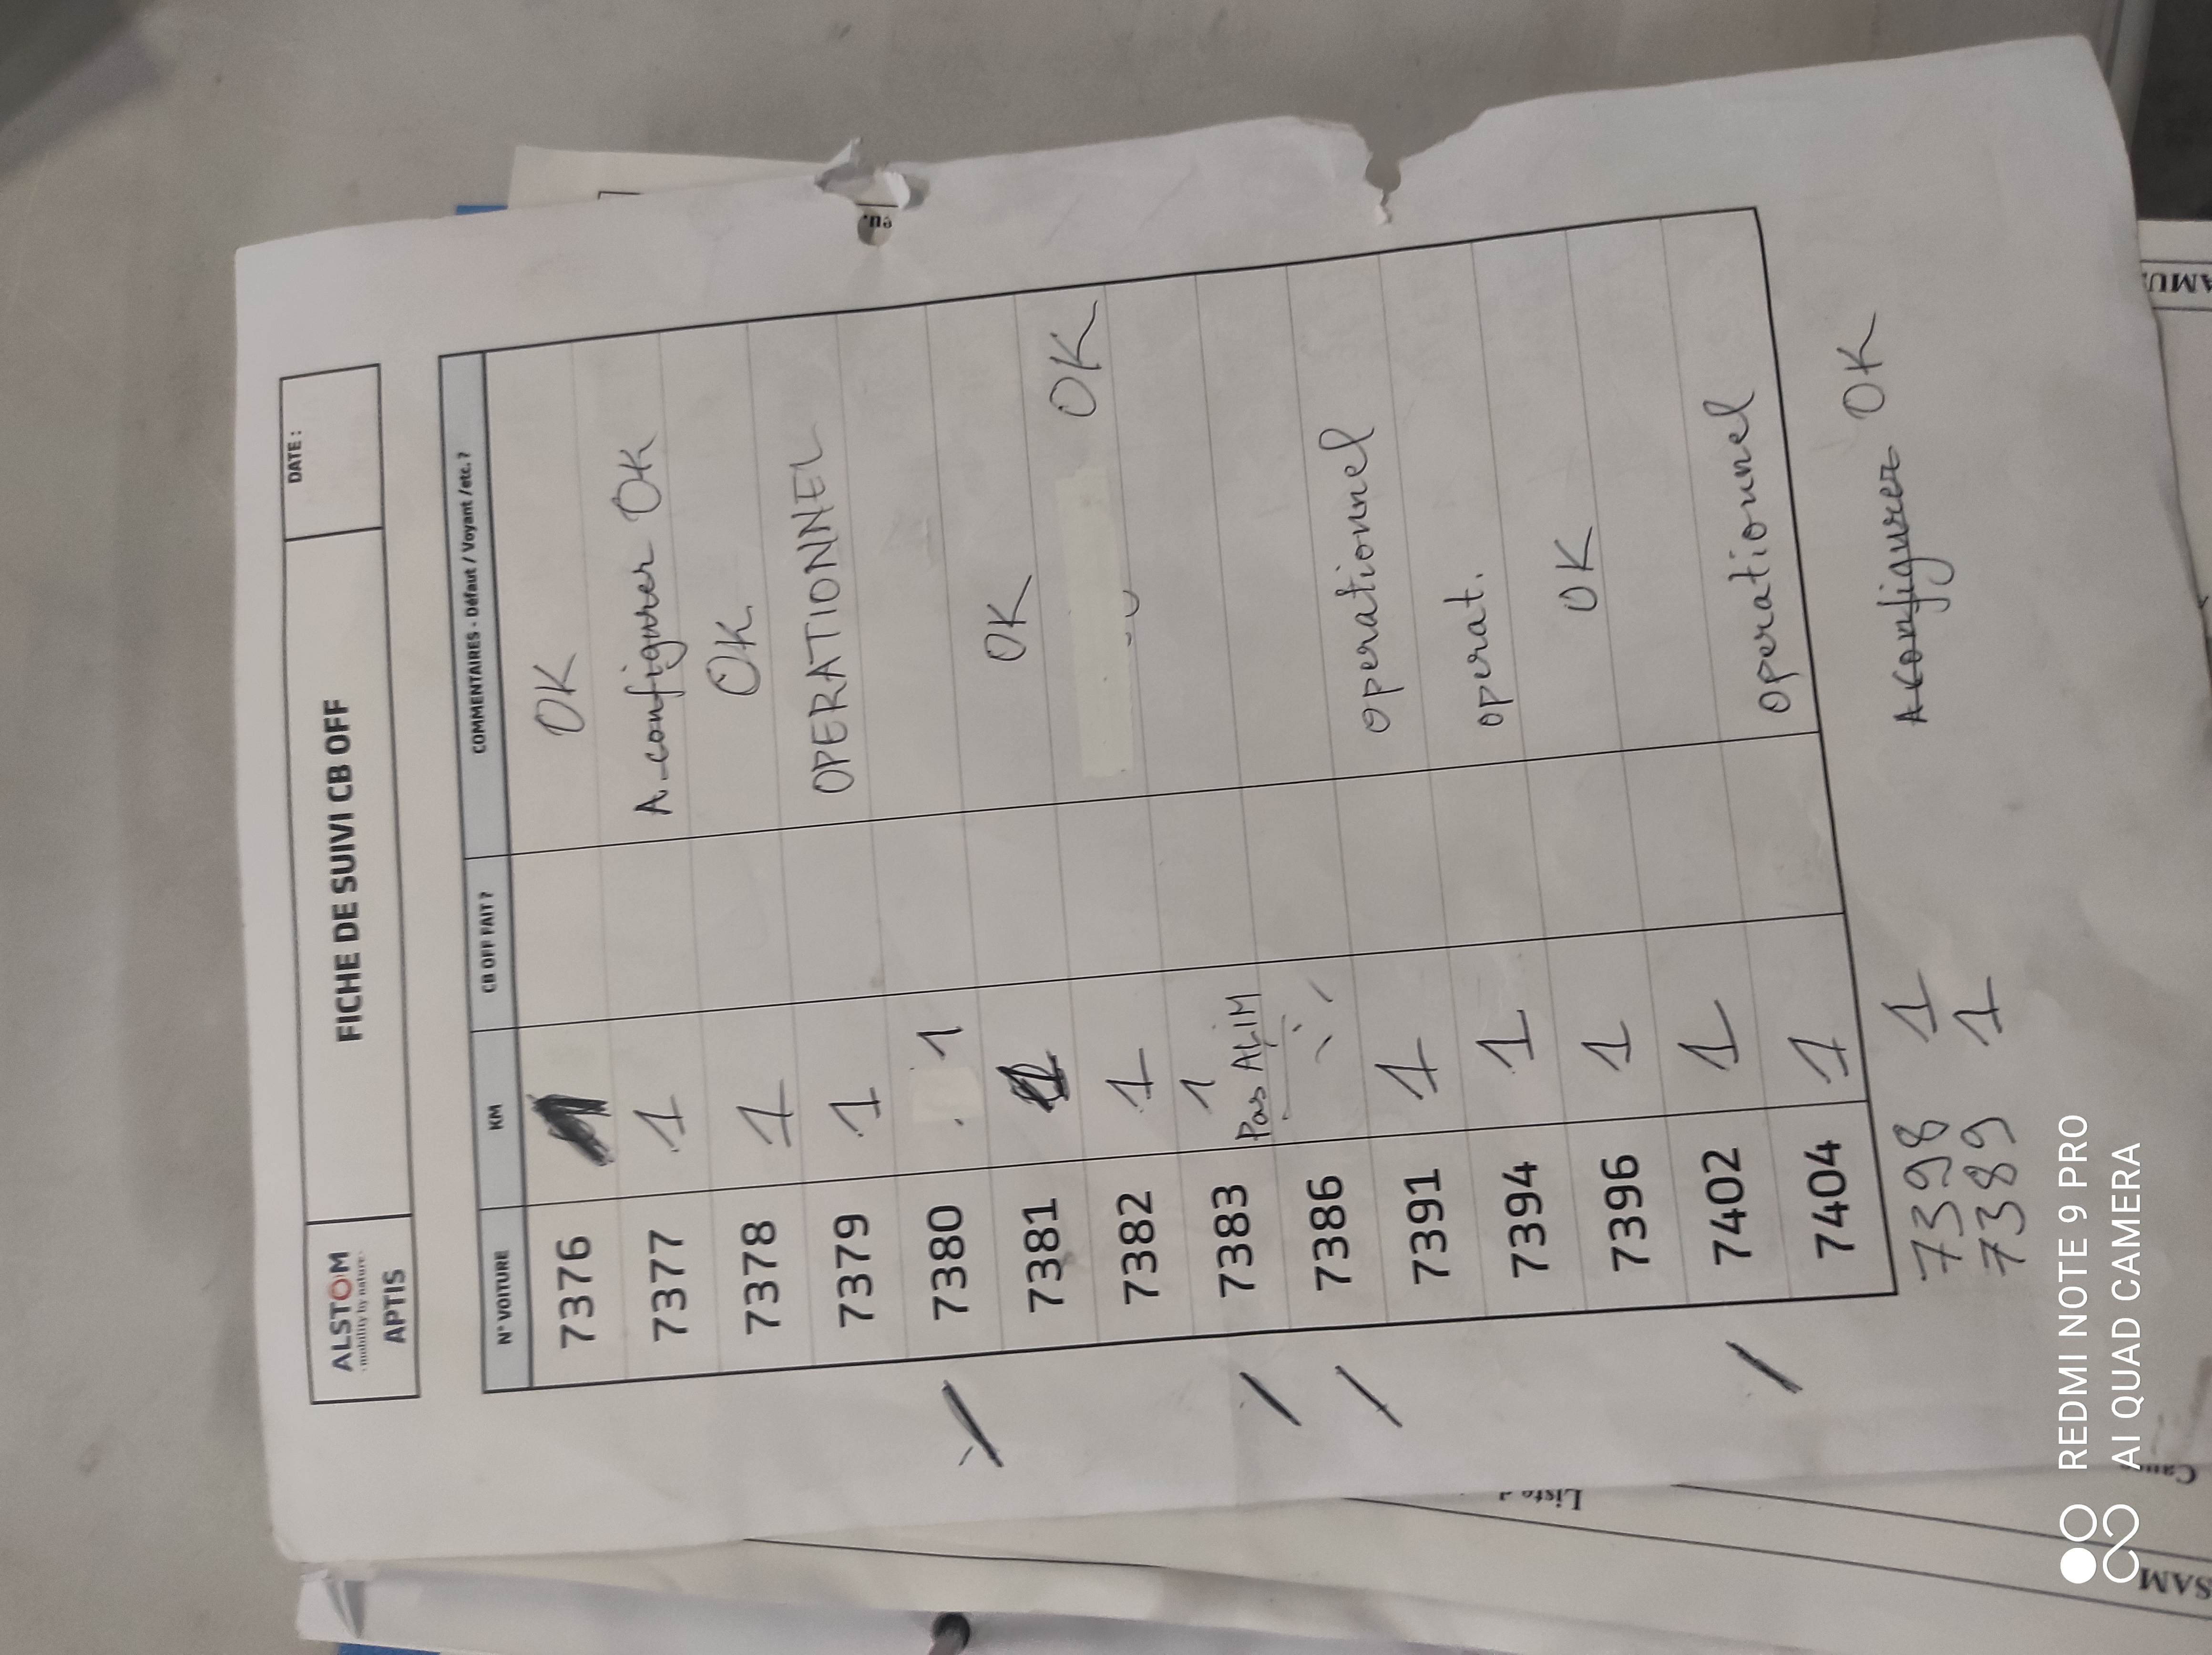 ALSTOM
mobility by nature
APTIS
FICHE DE SUIVI CB OFF
DATE :
N° VOITURE KM CB OFF FAIT ? COMMENTAIRES - Défaut / Voyant /etc. ?
7376 1 OK
7377 1 A configurer OK
7378 1 OK
7379 1 OPERATIONNEL
7380 1
7381 1 OK
7382 1 OK
7383 1
Pas ALIM
7386
7391 1 operationnel
7394 1 operat.
7396 1 OK
7402 1
7404 1 operationnel
7398 1 A configurer OK
7389 1
SAM
REDMI NOTE 9 PRO
AI QUAD CAMERA